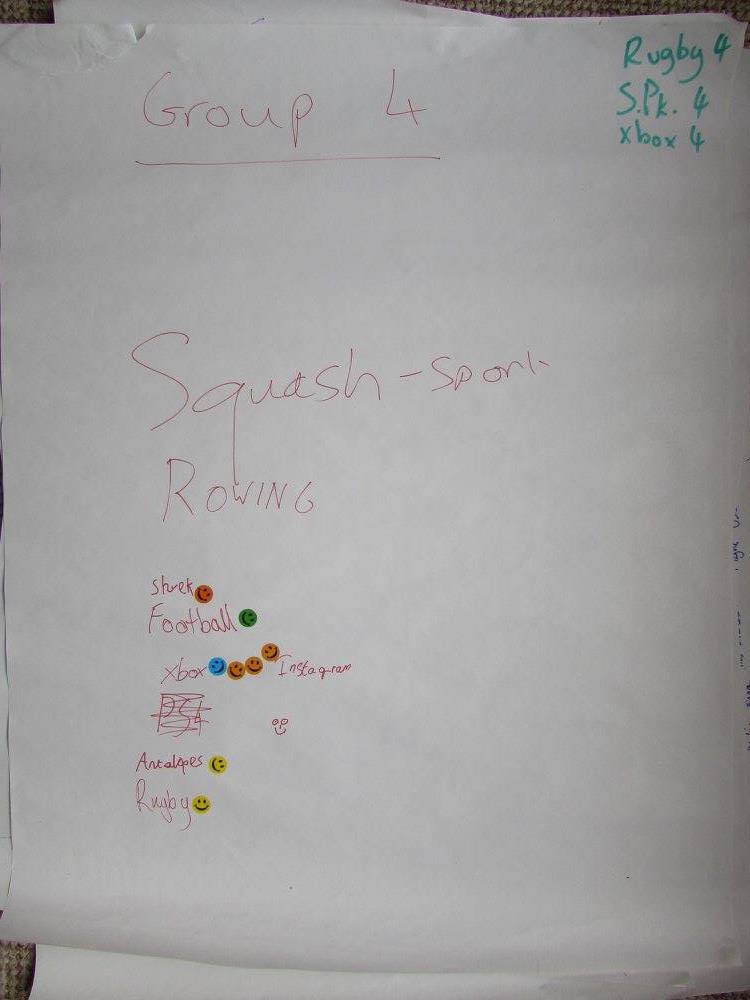 Rugby 4
S.Pk. 4
xbox 4
Group 4
Squash - sport
ROWING
Shrek
Football
xbox Instagram
PS4
Antalopes
Rugby